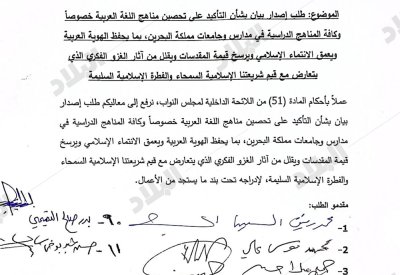 الموضوع: طلب إصدار بيان بشأن التأكيد على تحصين مناهج اللغة العربية خصوصاً
وكافة المناهج الدراسية في مدارس وجامعات مملكة البحرين، بما يحفظ الهوية العربية
ويعمق الانتماء الإسلامي ويرسخ قيمة المقدسات ويقلل من آثار الغزو الفكري الذي
يتعارض مع قيم شريعتنا الإسلامية السمحاء والفطرة الإسلامية السليمة
عملاً بأحكام المادة (51) من اللائحة الداخلية لمجلس النواب، نرفع إلى معاليكم طلب إصدار
بيان بشأن التأكيد على تحصين مناهج اللغة العربية خصوصاً وكافة المناهج الدراسية في
مدارس وجامعات مملكة البحرين، بما يحفظ الهوية العربية ويعمق الانتماء الإسلامي ويرسخ
قيمة المقدسات ويقلل من آثار الغزو الفكري الذي يتعارض مع قيم شريعتنا الإسلامية السمحاء
والفطرة الإسلامية السليمة، لإدراجه تحت بند ما يستجد من الأعمال.
مقدمو الطلب:
1-
2- محمد موسى
3-
٩- بدر صالح التميمي
١١-
البلاد